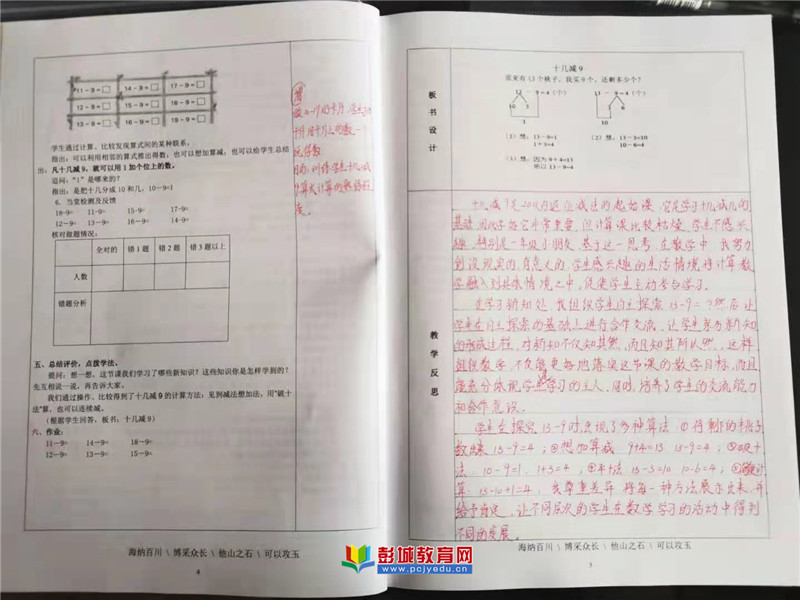 11－9＝□ 14－9＝□ 17－9＝□
12－9＝□ 15－9＝□ 18－9＝□
13－9＝□ 16－9＝□ 19－9＝□
学生通过计算、比较发现算式间的某种联系。
指出：可以利用相邻的算式推出得数；也可以想加算减；也可以给学生总结
出：凡十几减9，就可以用1加个位上的数。
追问：“1”是哪来的？
指出：是把十几分成10和几，10－9=1
6. 当堂检测及反馈
18-9= 11-9= 15-9= 17-9=
12－9= 13－9= 16－9= 14－9=
核对做题情况：
全对的 错1题 错2题 错3题以上
人数
错题分析
五、总结评价，点拨学法。
提问：想一想，这节课我们学习了哪些新知识？这些知识你是怎样学到的？
先互相说一说，再告诉大家。
我们通过操作、比较得到了十几减9的计算方法：见到减法想加法，用“破十
法”算，也可以连续减。
（根据学生回答，板书：十几减9）
六、作业：
11－9= 14－9= 18－9=
12－9= 13－9= 15－9=
海纳百川 \ 博采众长 \ 他山之石 \ 可以攻玉
4
板书设计
十几减9
原来有13个桃子，我买9个，还剩多少个？
13 －9＝4（个） 13 －9＝4（个）
10 3
（1）想：13－9=1 （2）想：13－3=10
1＋3=4 10－6=4
（3）想：因为9＋4=13
所以13－9=4
教学反思
十几减9是20以内退位减法的起始课，它是学习十几减几的
基础，因此学好它非常重要，但计算课比较枯燥，学生不感兴
趣，特别是一年级小朋友，基于这一思考，在教学中，我努力
创设现实的、有意义的、学生感兴趣的生活情境，将计算教
学融入到具体情境之中，促使学生主动参与学习。
在学习新知处，我组织学生自主探索13-9=？然后让
学生在自主探索的基础上进行合作交流，让学生亲历新知
的形成过程，对新知不仅知其然，而且知其所以然，这样
组织教学，不仅能更好地落实这节课的教学目标，而且
能充分体现学生学习的主人，同时，培养了学生的交流能力
和合作意识。
学生在探究13-9时出现了多种算法：①将剩的桃子
数出来 13-9=4；②想加算减 9+4=13 13-9=4；③破十
法 10-9=1，1+3=4；④平十法 13-3=10 10-6=4；⑤
算：13-10+1=4，我尊重差异，将每一种方法展示出来，并
给予肯定，让不同层次的学生在数学学习的活动中得到
不同的发展。
海纳百川 \ 博采众长 \ 他山之石 \ 可以攻玉
彭城教育网
www.pcjyedu.cn